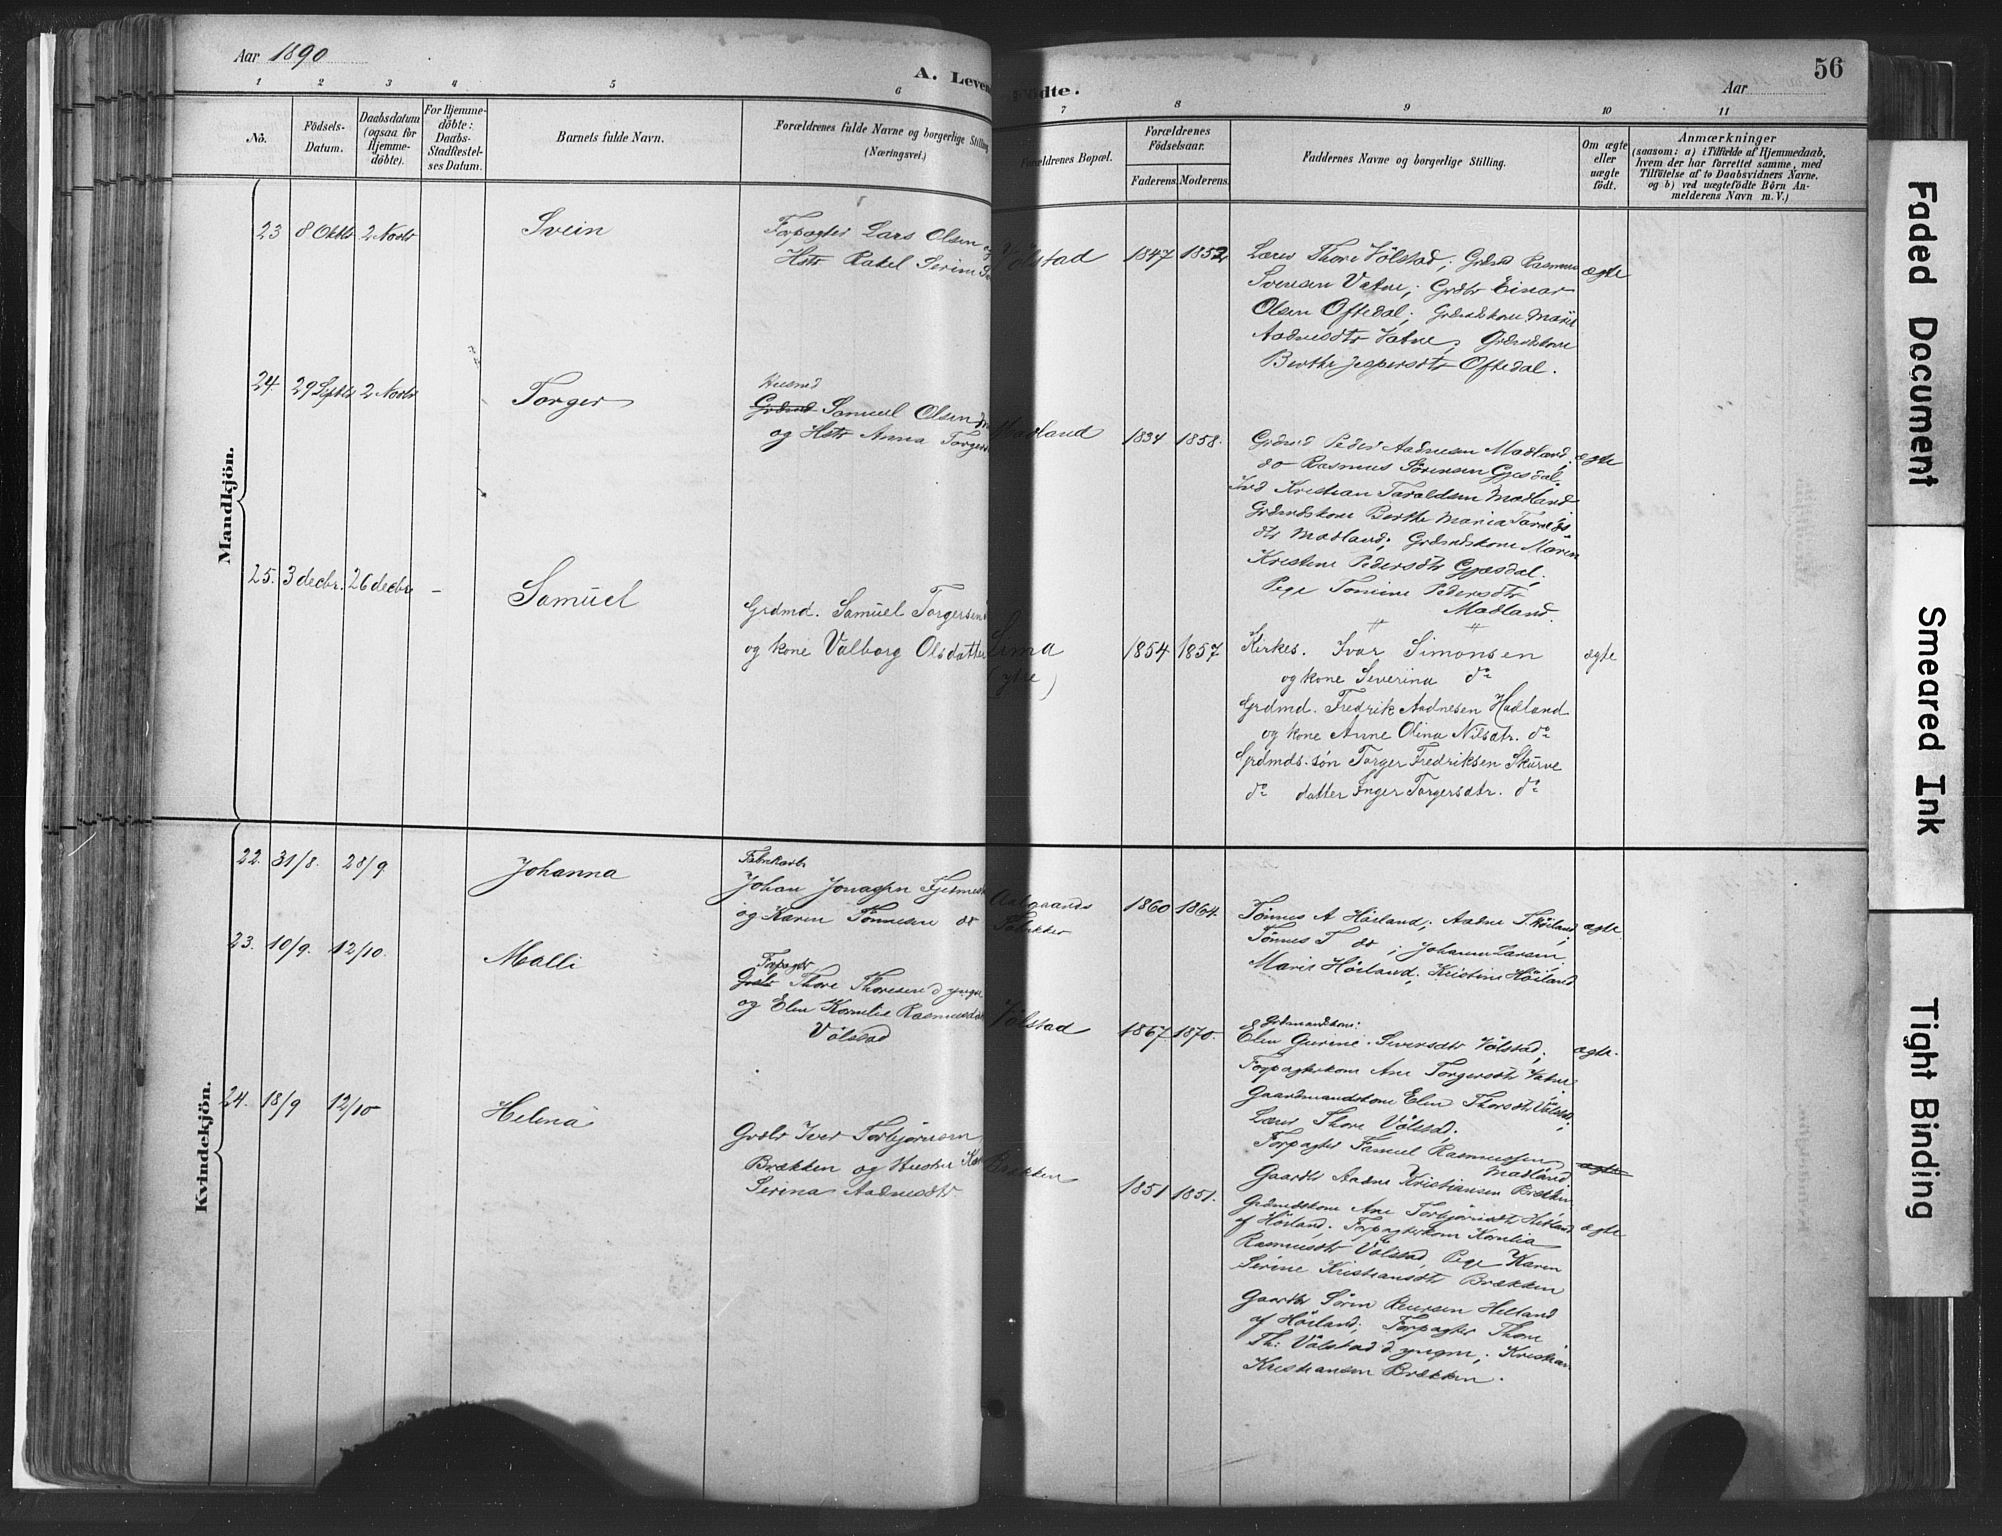 Aar 1890
A. Leven
ödte.
Aar
56
1 2 3 4 5 6 7 8 9 10 11
No.
Födsels-
Datum.
Daabsdatum
(ogsaa for
Hjemme-
döbte).
For Hjemme-
döbte:
Daabs-
Stadfæstel-
ses Datum.
Barnets fulde Navn.
Forældrenes fulde Navne og borgerlige Stilling
(Næringsvei.)
Forældrenes Bopæl.
Forældrenes
Födselsaar.
Faderens.
Moderens.
Faddernes Navne og borgerlige Stilling.
Om ægte
eller
uægte
födt.
Anmærkninger
(saasom: a) i Tilfælde af Hjemmedaab,
hvem der har forrettet samme, med
Tilföielse af to Daabsvidners Navne,
og b) ved uægtefödte Börn An-
melderens Navn m. V.)
Mandkjön.
23 8 Oktbr 2 Novbr
Svein
Forpagter Lars Olsen og
Hstr Rakel Serine
Völstad
1847 1852
Lærer Thore Völstad; Grdmd Rasmus
Svensen Vatne; Grdbr Einar
Olsen Oftedal; Grdmdskone
Aadnesdtr Vatne; Grdmdskone
Berthe Jespersdtr Oftedal.
ægte
24. 29 Septbr 2 Novbr
Torger
Husmd
Grdmd Samuel Olsen
og Hstr Anna Torgers
Madland
1834 1858.
Grdmd Peder Aadnesen Madland;
do Rasmus Sörensen Gjesdal
Kristian Taraldsen Madland
Grdmdskone Berthe Maria
dtr Madland; Grdmdskone Maren
Kristine Pedersdtr Gjesdal;
Pege Tomine Pedersdtr
Madland.
ægte
25. 3 decbr. 26 decbr. –
Samuel
Grdmd. Samuel Torgersen
og kone Valborg Olsdatter
Lima
(ytre)
1854 1857
Kirkes. Ivar Simonsen
og kone Severina do
Grdmd. Fredrik Aadnesen Madland
og kone Anne Olina Nilsdtr. do
Grdmds. søn Torger Fredriksen Skurve
do datter Inger Torgersdtr. do
ægte
Kvindekjön.
22. 31/8. 28/9
Johanna
Fabrikarb
Johan Jonassen
og Karen Tönnesen do
Aalgaards
Fabrikker
1860 1864.
Tönnes A Höiland; Aadne T Höiland;
Tönnes T do; Johanna Larsen
Marie Höiland; Kristine Höiland
ægte.
23. 10/9. 12/10.
Malli
Forpagtr
Grdbr Thore Thoresen d yngre
og Elen Kornelie Rasmusdtr
Völstad
Völstad
1867 1870.
Grdmandskone:
Elen Gurine Siversdtr Völstad;
Forpagterkone Ane Torgersdtr Vatne
Gaardmandskone Elen Thorsdtr Völstad;
Lærer Thore Völstad.
Forpagter Samuel Rasmussen
Madland
ægte.
24. 18/9 12/10
Helena
Grdbr Iver Torbjörnsen
Brækken og Hustru
Serina Aadnesdtr
Brækken
1851 1851.
ægte
Gaardbr Aadne Kristiansen Brækken
Grdmdskone Ane Torbjörnsdtr Helland
af Höiland; Forpagterkone Kornelia
Rasmusdtr Völstad, Pege Karen
Serine Kristiansdtr Brækken
Gaardbr Sören Helland
af Höiland; Forpagter Thore
Th: Völstad d yngre; Kristian
Kristiansen Brækken.
ægte
Faded Document
Smeared Ink
Tight Binding